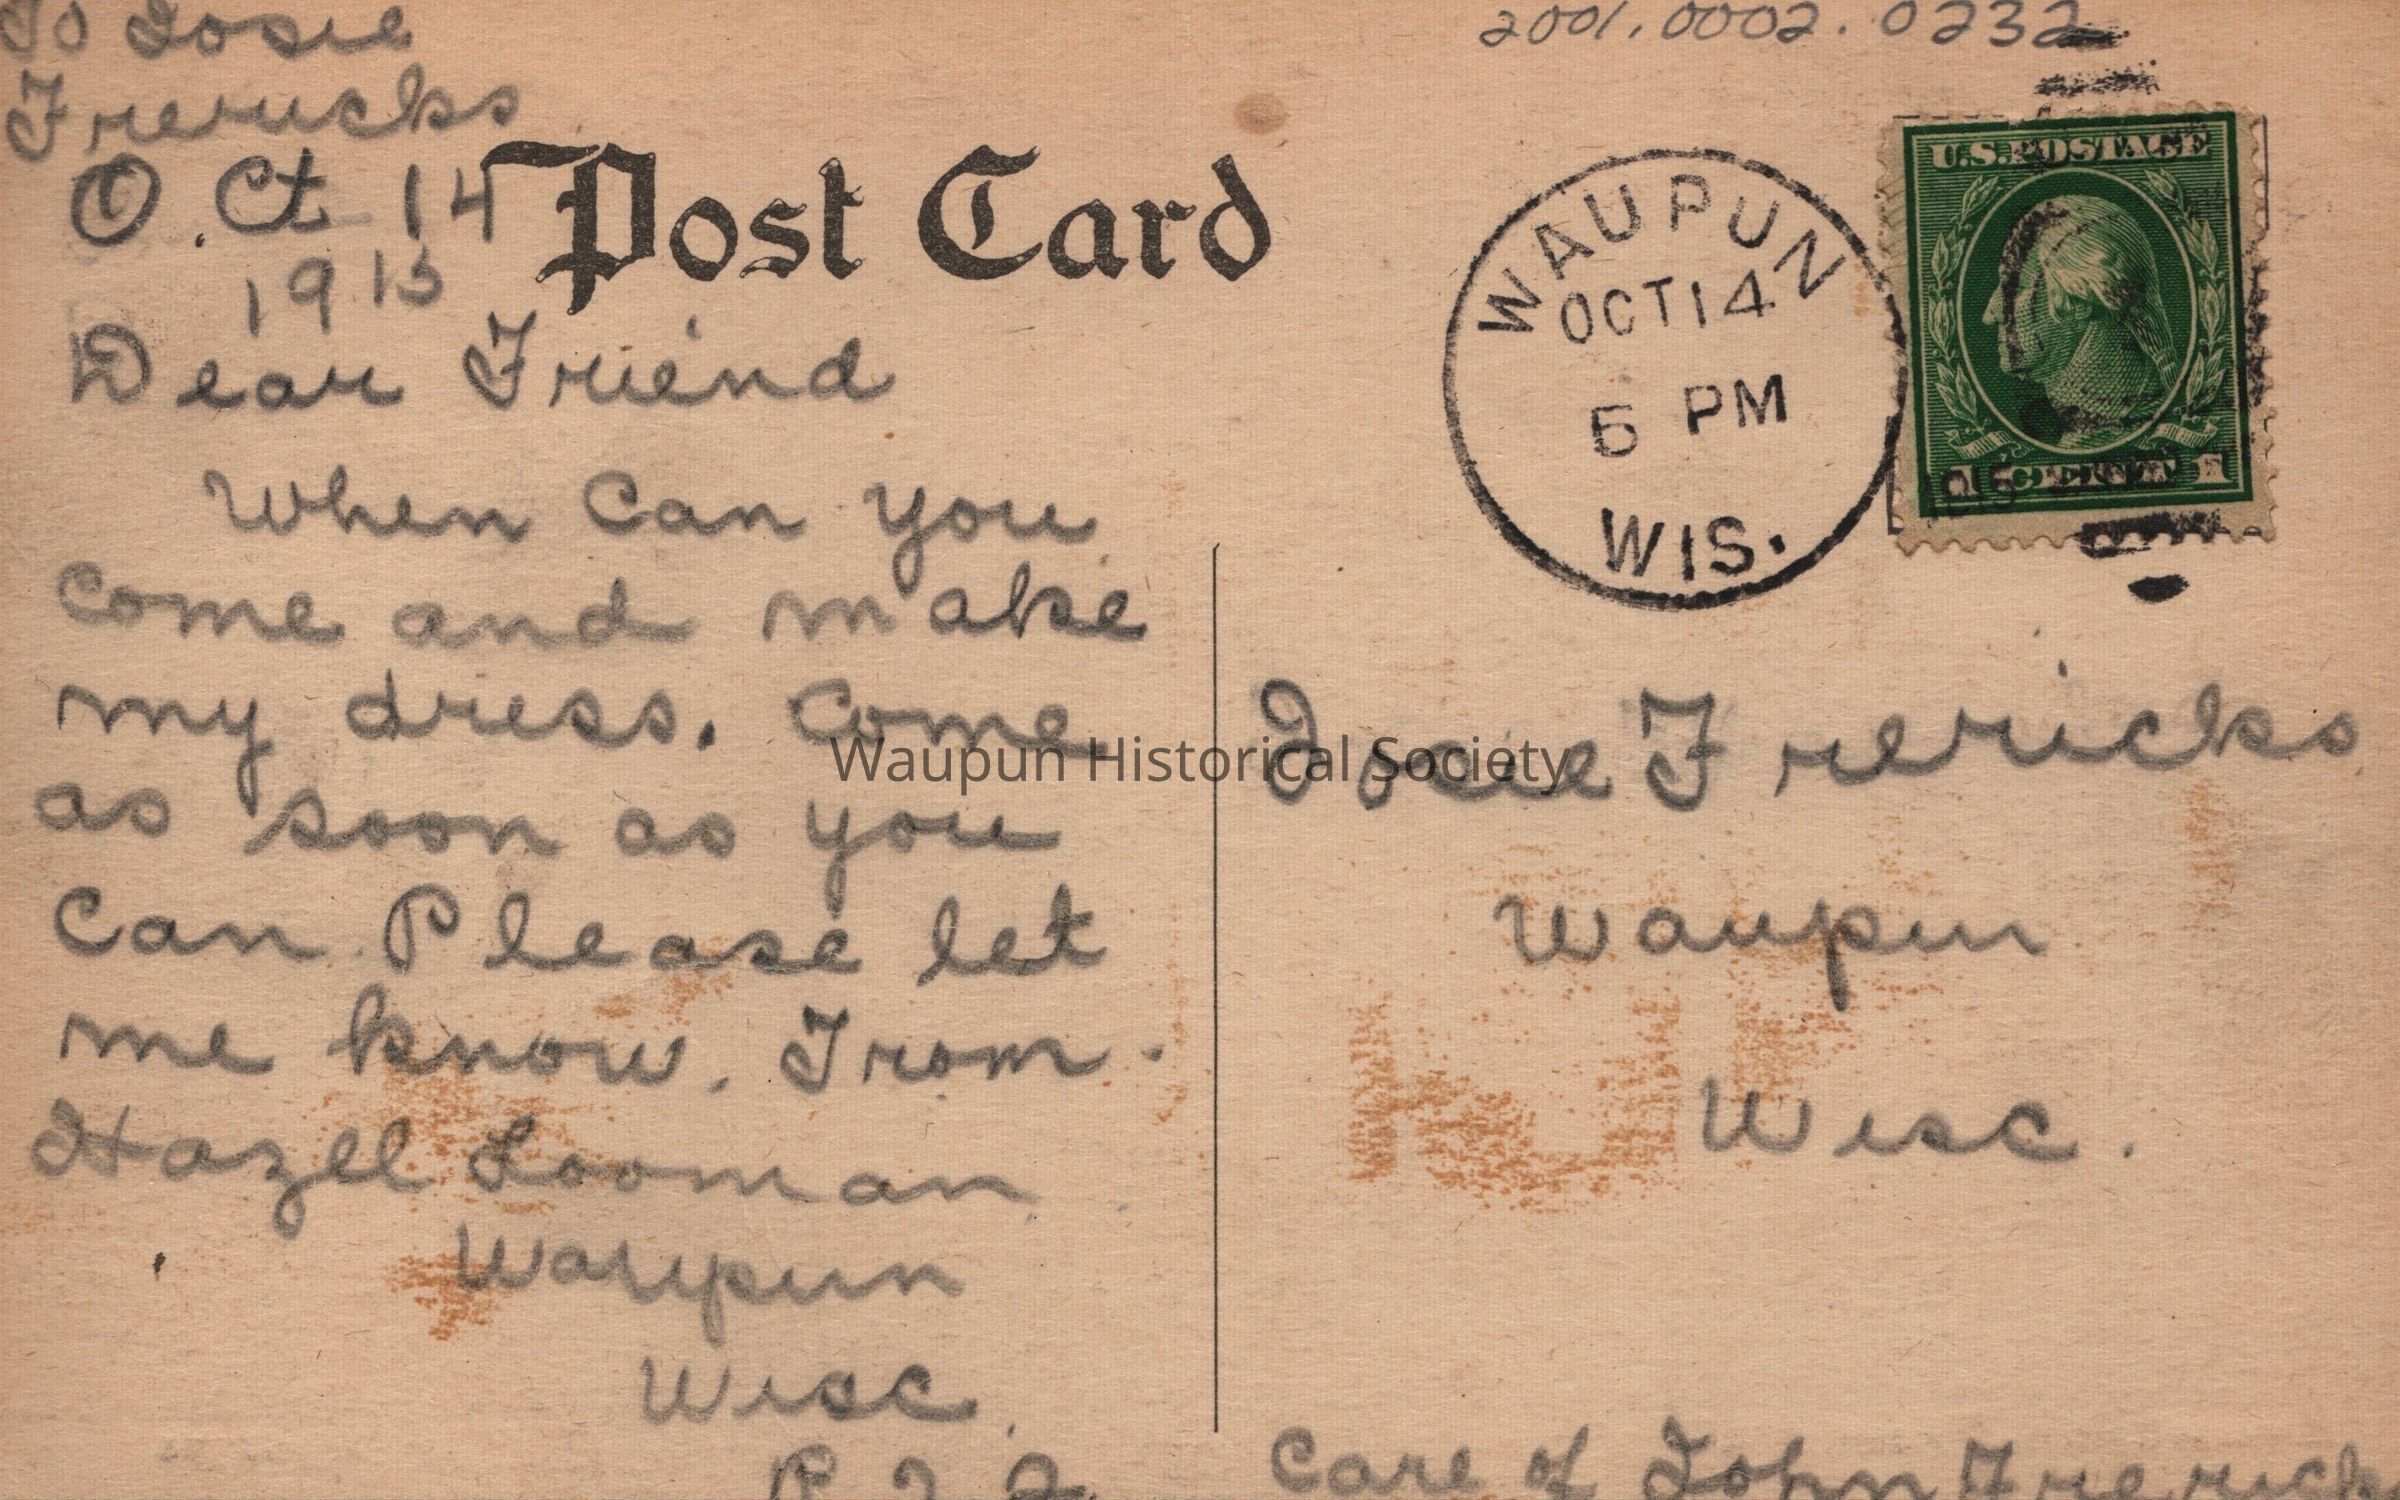 To Josie
Frericks
Oct 14
1915
Dear Friend
When can you
come and make
my dress. Come
as soon as you
can. Please let
me know. From.
Hazel Looman
Waupun
Wisc.
Post Card
2001.0002.0232
WAUPUN
OCT 14
5 PM
WIS.
U.S. POSTAGE
1 CENT 1
1915
Josie Frericks
Waupun
Wisc.
Care of John Frericks
Waupun Historical Society